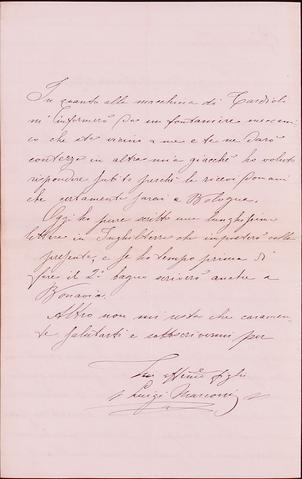 In quanto alla macchina di Tardioli
mi informerò da un fontaniere meccani-
co che sta vicino a me e te ne darò
contezza in altra mia giacchè ho voluto
rispondere subito perchè la riceva domani
che certamente sarai a Bologna.
Oggi ho pure scritto una lunghissima
lettera in Inghilterra che imposterò colla
presente, e se ho tempo prima di
fare il 2° bagno scriverò anche a
Bonavia.
Altro non mi resta che caramen-
te salutarti e sottoscrivermi per
Tuo affmo figlio
Luigi Marconi